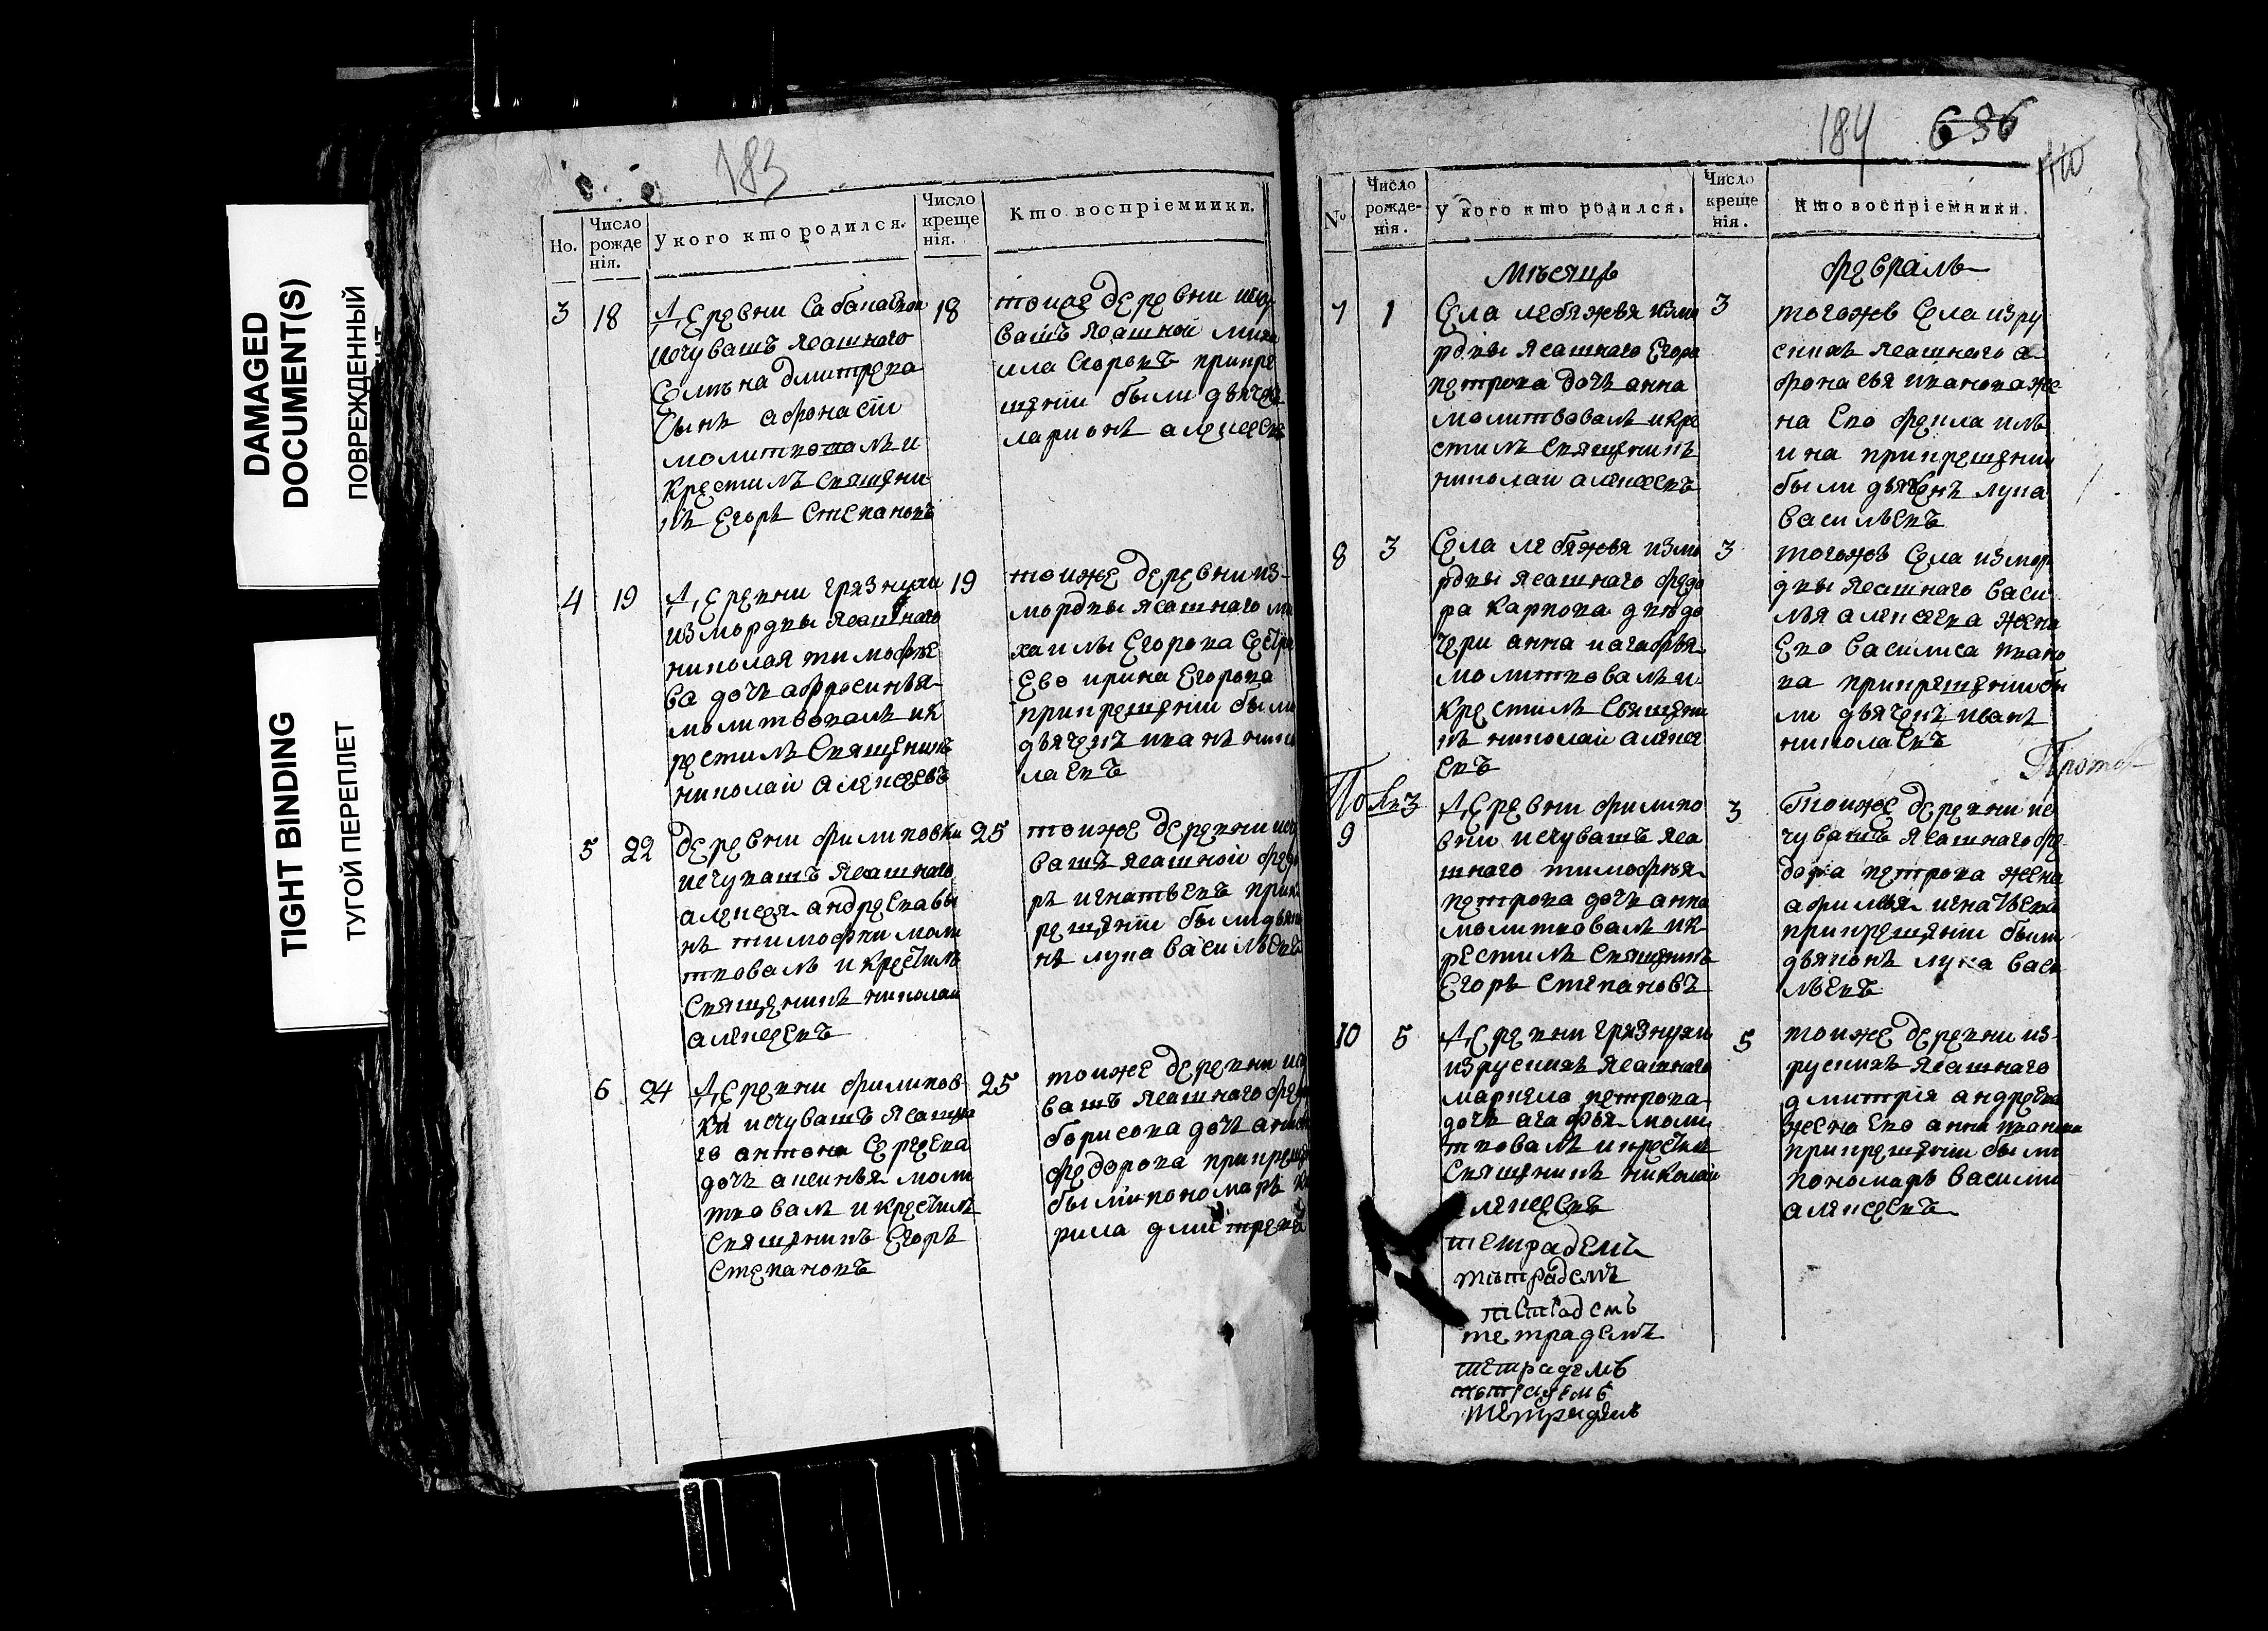 DAMAGED
DOCUMENT(S)
ПОВРЕЖДЕННЫЙ
TIGHT BINDING
ТУГОЙ ПЕРЕПЛЕТ
183
Но.
Число
рожде
нія.
У кого кто родился.
Число
креще
нія.
Кто воспріемники.
3
18
Деревни Сабанаевки
исчувашъ ясашнаго
Семена дмитрева
сынъ афонасіи
молитвовалъ и
крестилъ священи
къ Егоръ Степановъ
18
тоиже деревни исчу
вашъ ясашной
припре
щеніи были дьячек
ларионъ алексеевъ
4
19
Деревни грязнухи
измордвы ясашнаго
николая тимофее
ва дочь афросинья
молитвовалъ ик
рестилъ священикъ
николаи алексеевъ
19
тоиже деревни из
мордвы ясашнаго ми
хаилы Егорова сестра
Ево ирина Егорова
прикрещеніи были
дьячекъ иванъ нико
лаевъ
5
22
деревни филиповки
исчувашъ ясашнаго
алексея андреева сы
нъ тимофеи моли
твовалъ и крестилъ
священикъ николаи
алексеевъ
25
тоиже деревни исчу
вашъ ясашной федо
ръ игнатьевъ прик
рещеніи были дьяко
нъ лука васильевъ
6
24
Деревни филипов
ки исчувашъ ясашна
го антона сергеева
дочь аксинья моли
твовалъ и крестилъ
священикъ Егоръ
Степановъ
25
тоиже деревни исчу
вашъ ясашнаго
борисова дочь
федорова прикреще
были пономарь ки
рила дмитревъ
184 636
No
Число
рожде-
нія.
У кого кто родился.
Число
креще
нія.
Кто воспріемники.
Месяцъ февраль
7
1
Села лебяжья измо
рдвы ясашнаго Егора
петрова дочь анна
молитвовалъ икре
стилъ священикъ
николаи алексеевъ
3
тогожъ села изру
скихъ ясашнаго а
фонасья иванова же
на Ево фекла
прикрещении
были дьяченъ лука
васильевъ
8
3
Села лебяжья измо
рдвы ясашнаго федо
ра карпова две до
чери анна иагафья
молитвовалъ и
крестилъ священи
къ николаи алексе
евъ
3
тогожъ села измор
двы ясашнаго васи
лья алексеева жена
Ево василиса ивано
ва прикрещении бы
ли дьячекъ иванъ
николаевъ
Прото
По Як
9
3
Деревни филипо
вки исчувашъ яса
шнаго тимофея
петрова дочь анна
молитвовалъ ик
рестилъ священикъ
Егоръ Степановъ
3
Тоиже деревни ис
чувашъ ясашнаго фе
дора петрова жена
афимья игнатьева
прикрещении были
дьяконъ лука васи
льевъ
10
5
Деревни грязнухи
изрускихъ ясашнаго
маркела петрова
дочь агафья моли
твовалъ икрестилъ
священикъ николаи
алексеевъ
5
тоиже деревни из
рускихъ ясашнаго
дмитрія андреева
жена Ево анна иванова
прикрещении были
пономарь василии
алексеевъ
тетрадемъ
тетрадемъ
тетрадемъ
тетрадемъ
тетрадемъ
тетрадемъ
тетрадемъ